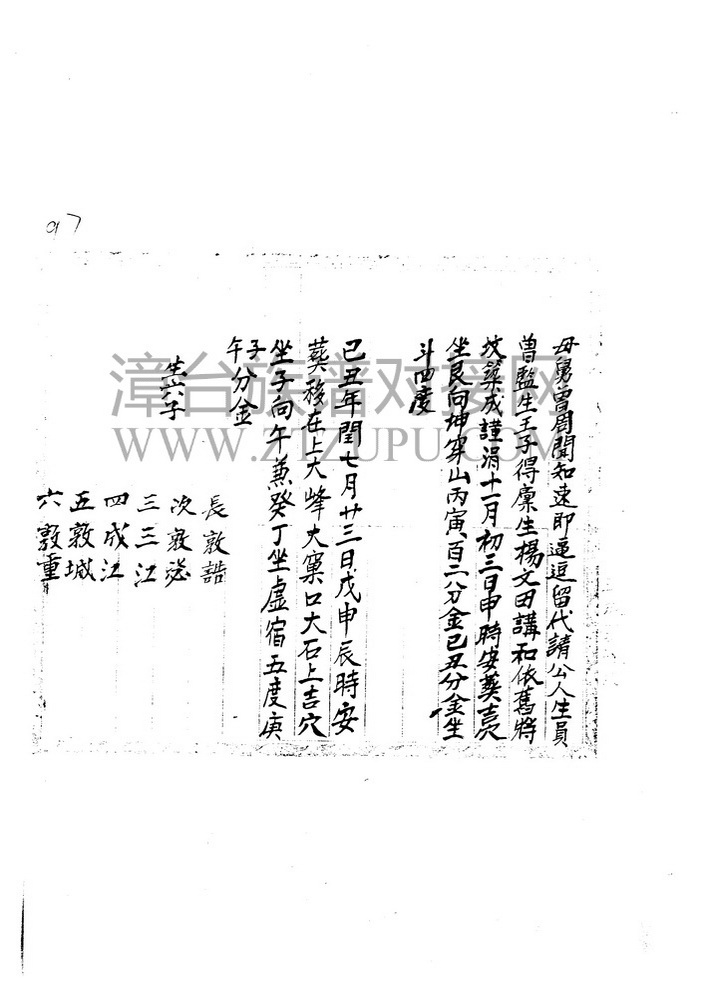 97
母舅曾周聞知速即逼逗留代請公人生員
曾監生王子得廩生楊文田講和依舊將
坟築成謹涓十一月初三日申時安葬吉穴
坐艮向坤穿山丙寅百二分金己丑分金坐
斗四度
己丑年閏七月廿三日戊申辰時安
葬移在上大峰大窠口大石上吉穴
坐子向午兼癸丁坐虛宿五度庚
午子分金
生六子
長敦誥
次敦
三三江
四成江
五敦城
六敦重
漳台族谱对接网
WWW.ZTZUPU.COM